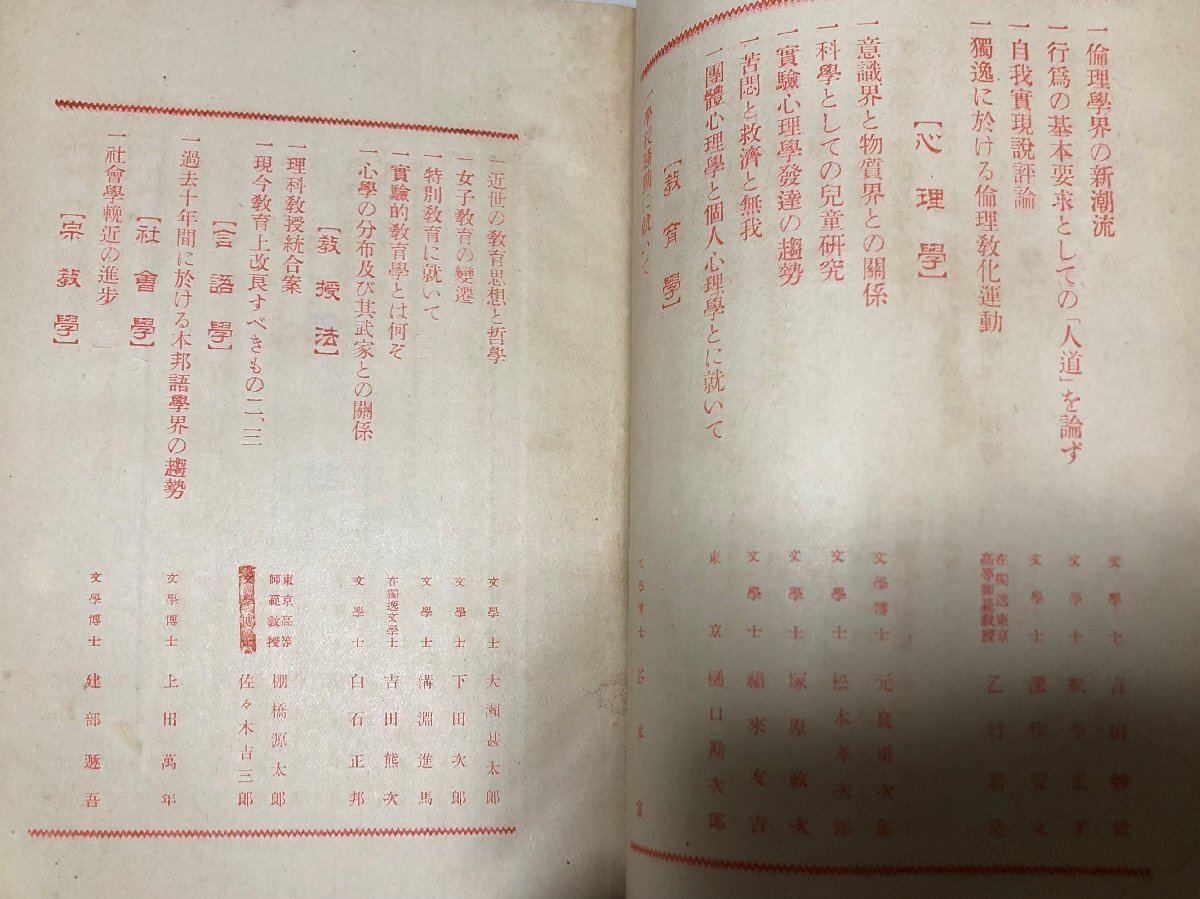 一倫理學界の新潮流 文學士
一行爲の基本要求としての「人道」を論ず 文學士
一自我實現說評論 文學士 深作安文
一獨逸に於ける倫理敎化運動 在獨逸東京高等師範敎授 乙竹岩造
【心理學】
一意識界と物質界との關係 文學博士 元良勇次郎
一科學としての兒童硏究 文學士 松本孝次郎
一實驗心理學發達の趨勢 文學士 塚原政次
一苦悶と救濟と無我 文學士 福來友吉
一團體心理學と個人心理學とに就いて 東京 樋口勘次郎
【敎育學】
一學校騷動に就いて 文學博士 谷本富
一近世の敎育思想と哲學 文學士 大瀨甚太郎
一女子敎育の變遷 文學士 下田次郎
一特別敎育に就いて 文學士 溝淵進馬
一實驗的敎育學とは何ぞ 在獨逸文學士 吉田熊次
一心學の分布及び其武家との關係 文學士 白石正邦
【敎授法】
一理科敎授統合案 東京高等師範敎授 棚橋源太郎
一現今敎育上改良すべきもの二、三 佐々木吉三郎
【言語學】
一過去十年間に於ける本邦語學界の趨勢 文學博士 上田萬年
【社會學】
一社會學輓近の進步 文學博士 建部遯吾
【宗敎學】